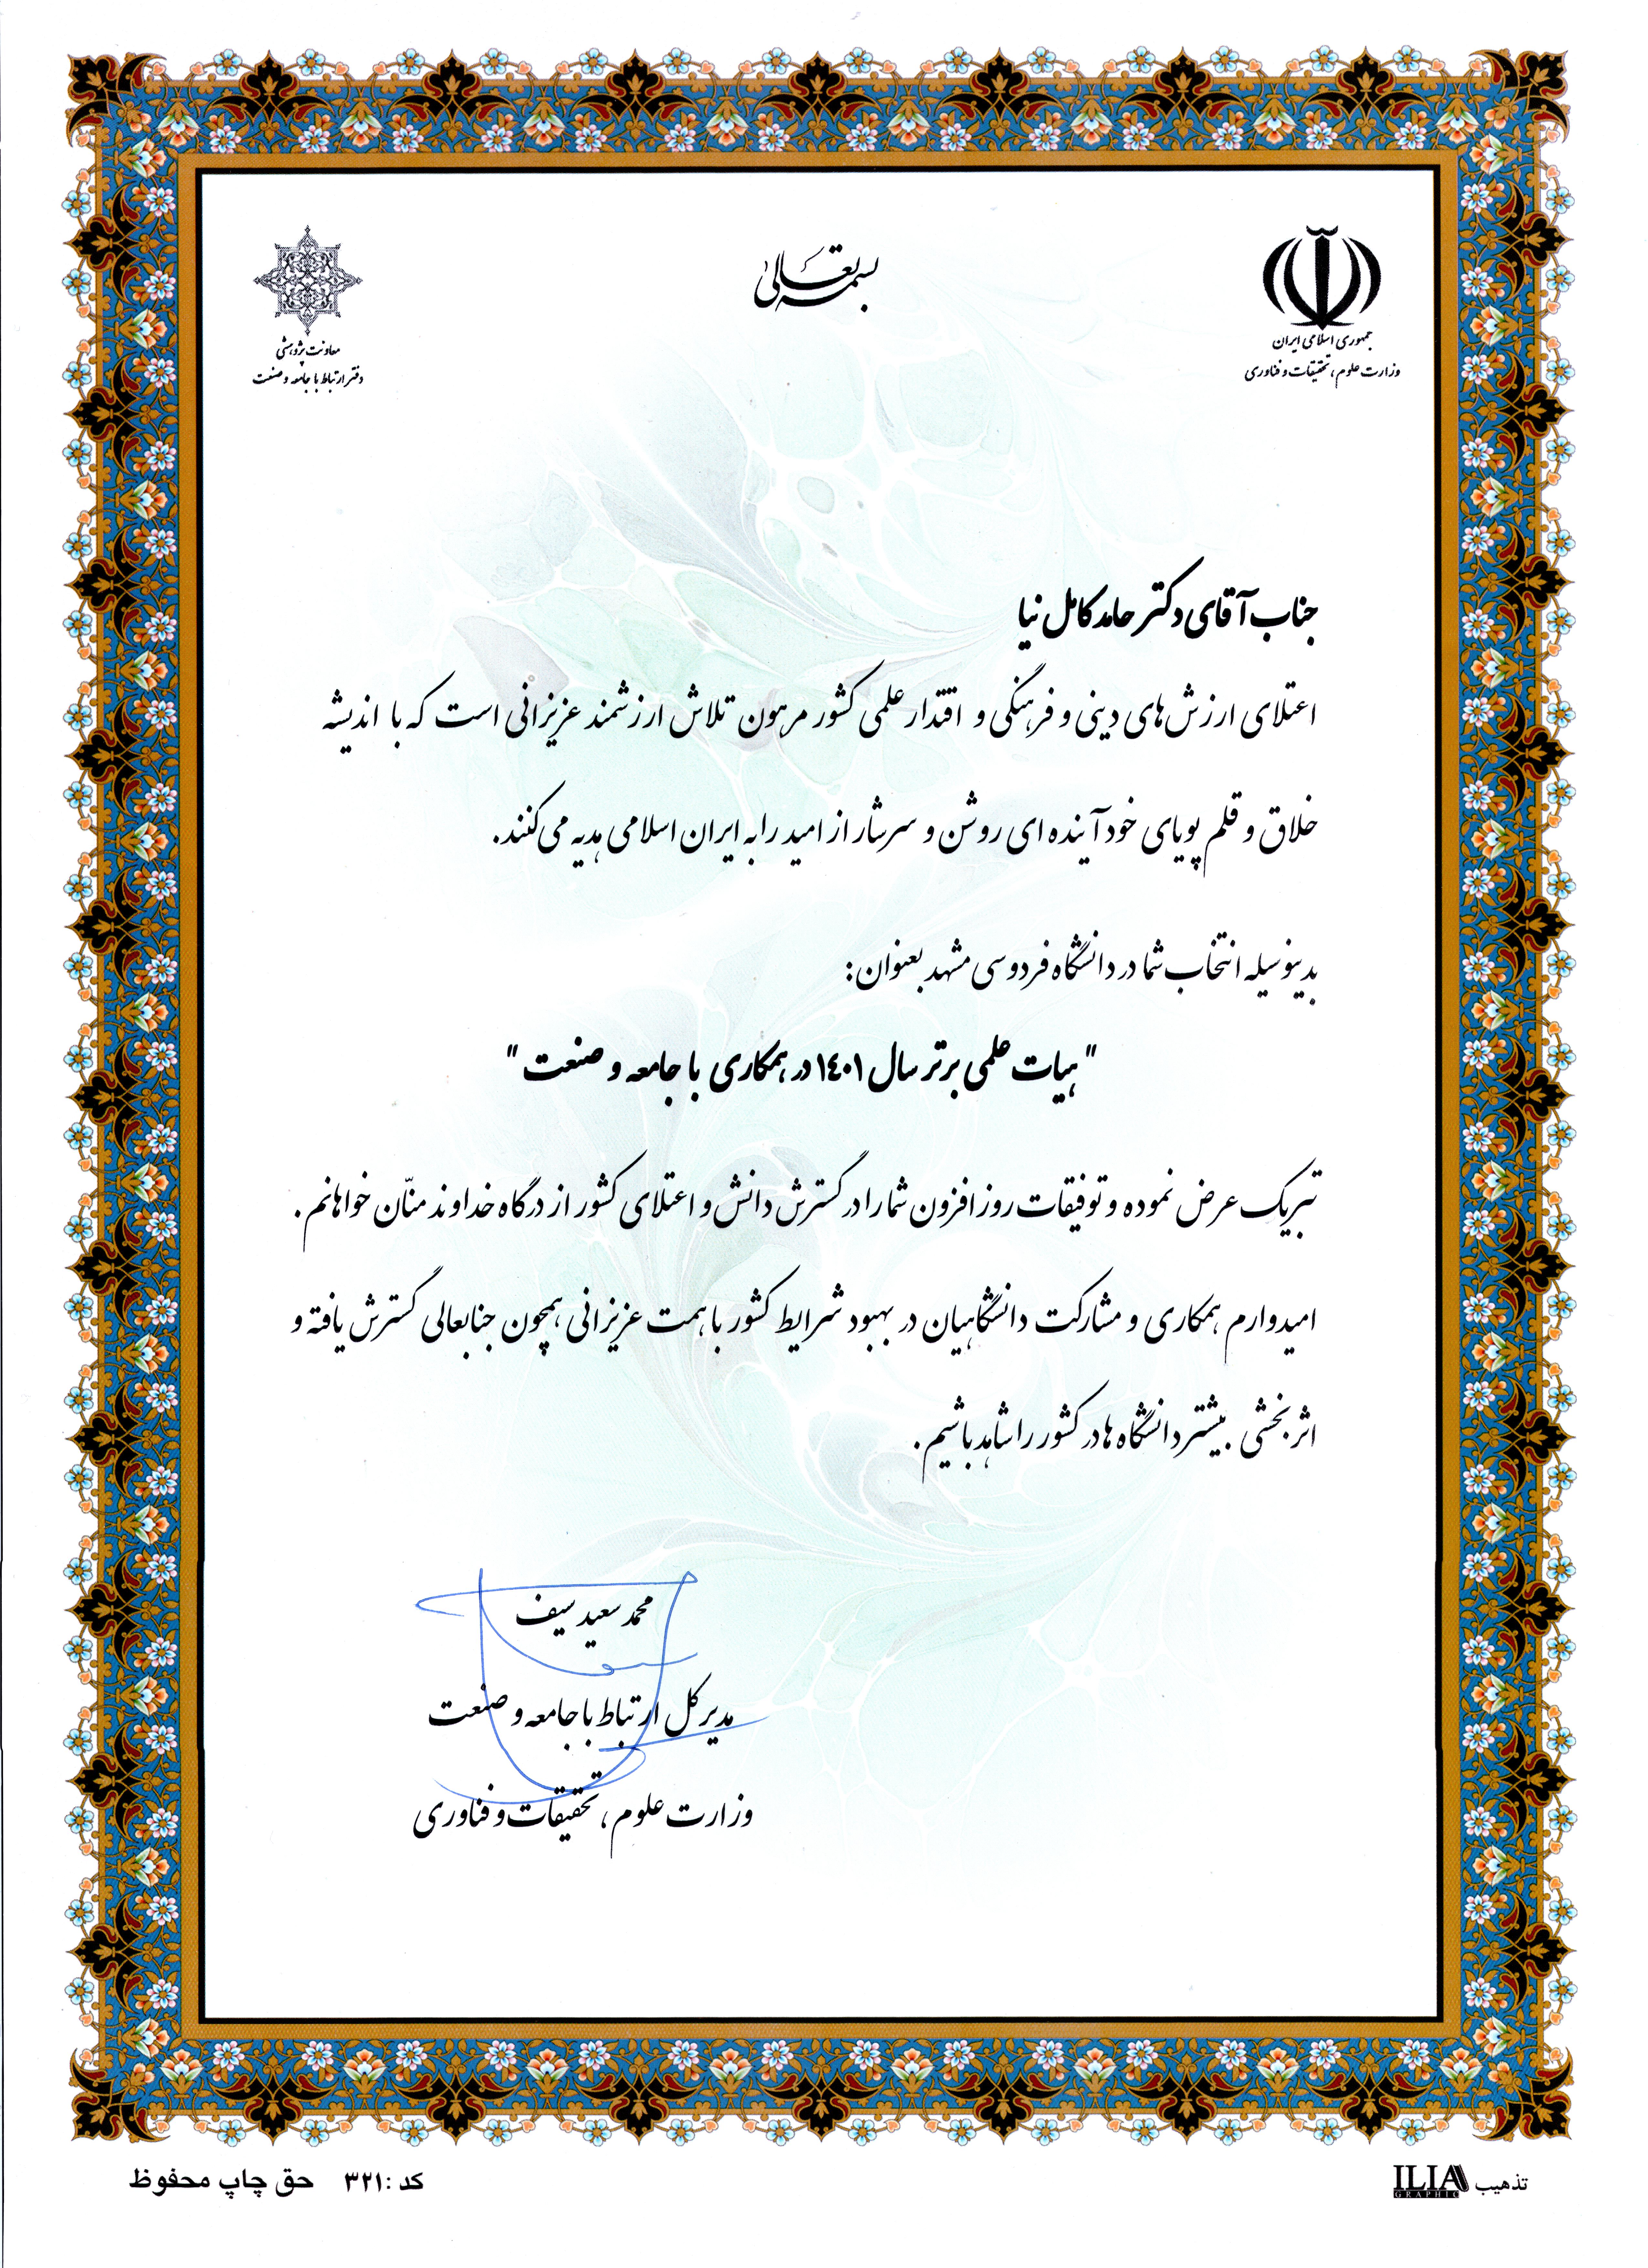 بسمه تعالی
جمهوری اسلامی ایران
وزارت علوم، تحقیقات و فناوری
معاونت پژوهشی
دفتر ارتباط با جامعه و صنعت
جناب آقای دکتر حامد کامل نیا
اعتلای ارزش‌های دینی و فرهنگی و اقتدار علمی کشور مرهون تلاش ارزشمند عزیزانی است که با اندیشه
خلاق و قلم پویای خود آینده ای روشن و سرشار از امید را به ایران اسلامی هدیه می‌کنند.
بدینوسیله انتخاب شما در دانشگاه فردوسی مشهد بعنوان:
"هیات علمی برتر سال ۱۴۰۱ در همکاری با جامعه و صنعت"
تبریک عرض نموده و توفیقات روزافزون شما را در گسترش دانش و اعتلای کشور از درگاه خداوند منّان خواهانم.
امیدوارم همکاری و مشارکت دانشگاهیان در بهبود شرایط کشور با همت عزیزانی همچون جنابعالی گسترش یافته و
اثربخشی بیشتر دانشگاه ها در کشور را شاهد باشیم.
محمد سعید سیف
مدیر کل ارتباط با جامعه و صنعت
وزارت علوم، تحقیقات و فناوری
تذهیب ILIA
GRAPHIC
کد :۳۲۱ حق چاپ محفوظ